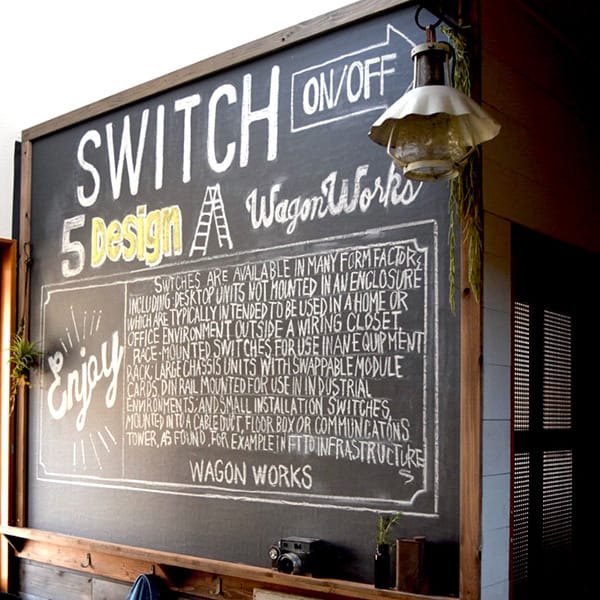 SWITCH
ON/OFF
5 Design
WagonWorks
Enjoy
SWITCHES ARE AVAILABLE IN MANY FORM FACTORS,
INCLUDING: DESKTOP UNITS NOT MOUNTED IN AN ENCLOSURE
WHICH ARE TYPICALLY INTENDED TO BE USED IN A HOME OR
OFFICE ENVIRONMENT OUTSIDE A WIRING CLOSET,
RACE-MOUNTED SWITCHES FOR USE IN AN EQUIPMENT
RACK; LARGE CHASSIS UNITS WITH SWAPPABLE MODULE
CARDS DIN RAIL MOUNTED FOR USE IN INDUSTRIAL
ENVIRONMENTS; AND SMALL INSTALLATION SWITCHES,
MOUNTED INTO A CABLE DUCT, FLOOR BOX OR COMMUNICATONS
TOWER, AS FOUND, FOR EXAMPLE IN FTTO INFRASTRUCTURE
S
WAGON WORKS